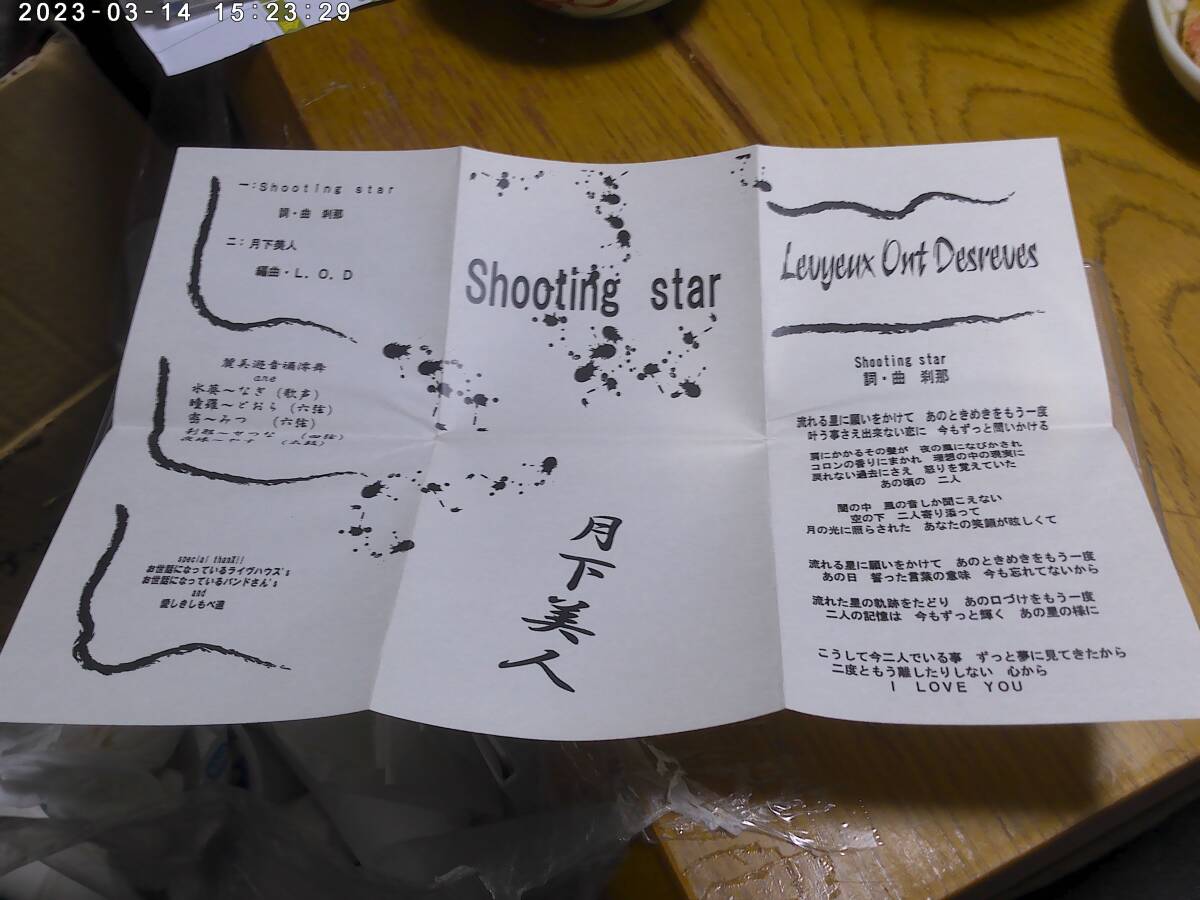 2023-03-14 15:23:29
一:Shooting star
詞・曲 刹那
二:月下美人
編曲・L.O.D
麗美遊音
are
水葵〜なぎ (歌声)
瞳羅〜どおら (六弦)
密〜みつ (六弦)
刹那〜せつな (四弦)
special thanX!!
お世話になっているライヴハウス's
お世話になっているバンドさん's
and
愛しきしもべ達
Shooting star
月下美人
Levyeux Ont Desreves
Shooting star
詞・曲 刹那
流れる星に願いをかけて あのときめきをもう一度
叶う事さえ出来ない恋に 今もずっと問いかける
肩にかかるその髪が 夜の風になびかされ
コロンの香りにまかれ 理想の中の現実に
戻れない過去にさえ 怒りを覚えていた
あの頃の 二人
闇の中 風の音しか聞こえない
空の下 二人寄り添って
月の光に照らされた あなたの笑顔が眩しくて
流れる星に願いをかけて あのときめきをもう一度
あの日 誓った言葉の意味 今も忘れてないから
流れた星の軌跡をたどり あの口づけをもう一度
二人の記憶は 今もずっと輝く あの星の様に
こうして今二人でいる事 ずっと夢に見てきたから
二度ともう離したりしない 心から
I LOVE YOU